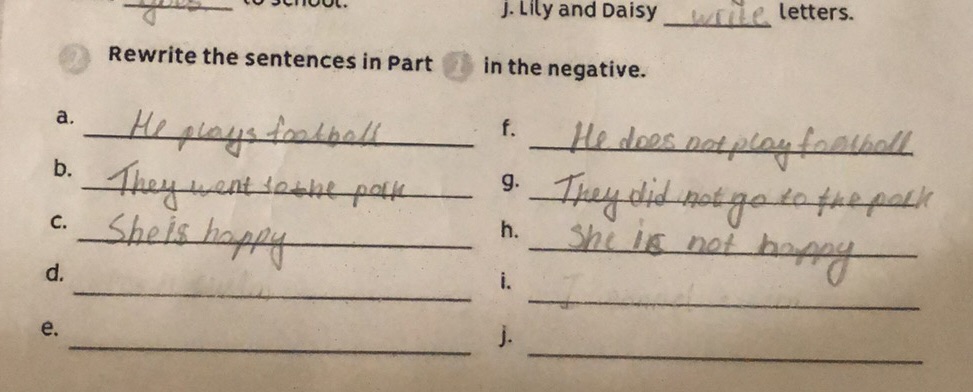 goes to school.
j. Lily and Daisy write letters.
2 Rewrite the sentences in Part 1 in the negative.
a. He plays football
f. He does not play football
b. They went to the park
g. They did not go to the park
c. She is happy
h. She is not happy
d.
i.
e.
j.